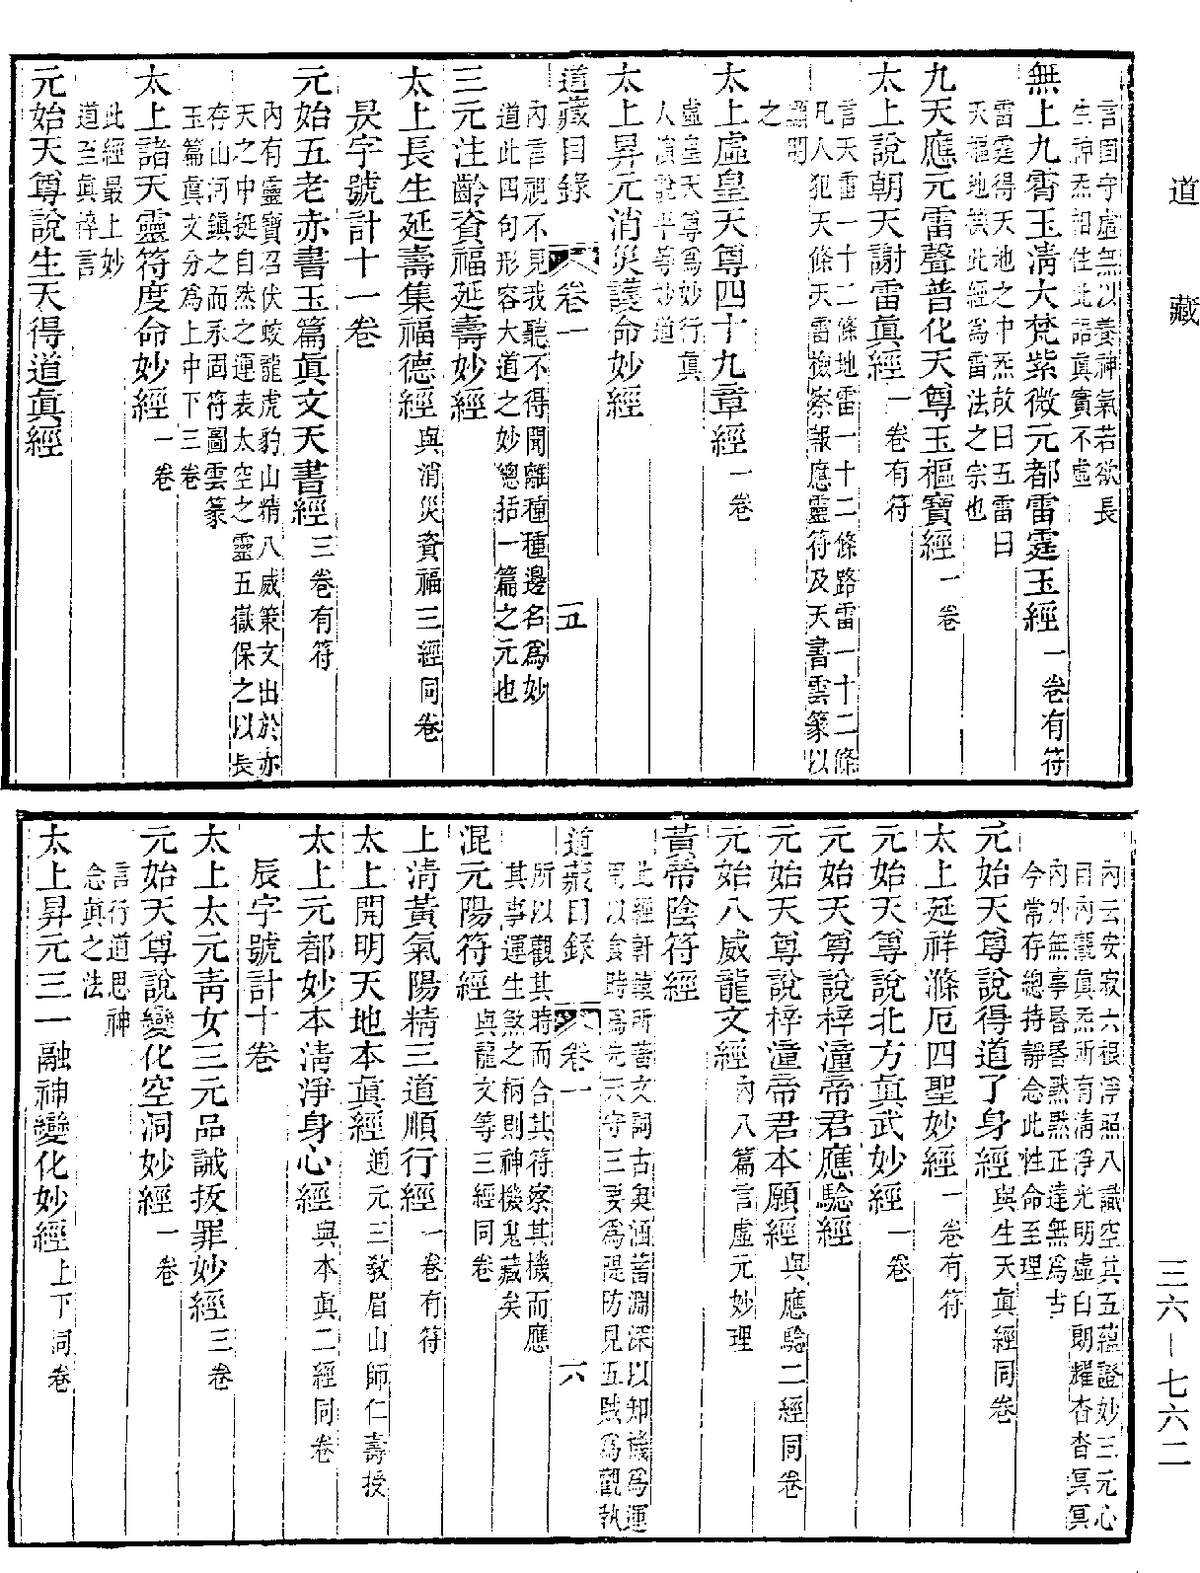 道藏
言固守虛無以養神氣若欲長
生神炁相住此語眞實不虛
無上九霄玉淸大梵紫微元都雷霆玉經一卷有符
雷霆得天地之中炁故曰五雷曰
天樞地機此經爲雷法之宗也
九天應元雷聲普化天尊玉樞寶經一卷
太上說朝天謝雷眞經一卷有符
言天雷一十二條地雷一十二條路雷一十二條
凡人犯天條天雷檢察報應靈符及天書雲篆以
顯明
之
太上虛皇天尊四十九章經一卷
虛皇天尊爲妙行眞
人演說平等妙道
太上昇元消災護命妙經
道藏目錄 卷一 五
內言視不見我聽不得聞離種種邊名爲妙
道此四句形容大道之妙總括一篇之元也
三元注齡資福延壽妙經
太上長生延壽集福德經與消災資福三經同卷
昃字號計十一卷
元始五老赤書玉篇眞文天書經三卷有符
內有靈寶召伏蛟龍虎豹山精八威策文出於赤
天之中挺自然之運表太空之靈五嶽保之以長
存山河鎭之而永固符圖雲篆
玉篇眞文分爲上中下三卷
太上諸天靈符度命妙經一卷
此經最上妙
道至眞粹言
元始天尊說生天得道眞經
內云安寂六根淨照八識空其五蘊證妙三元心
目內觀眞炁所有淸淨光明虛白朗耀杳杳冥冥
內外無事昏昏默默正達無爲古
今常存總持靜念此性命至理
元始天尊說得道了身經與生天眞經同卷
太上延祥滌厄四聖妙經一卷有符
元始天尊說北方眞武妙經一卷
元始天尊說梓潼帝君應驗經
元始天尊說梓潼帝君本願經與應驗二經同卷
元始八威龍文經內八篇言虛元妙理
黃帝陰符經
此經軒轅所著文詞古奧涵蓄淵深以知機爲運
用以食時爲先天守三要爲隄防見五賊爲觀執
道藏目錄 卷一 六
所以觀其時而合其符察其機而應
其事運生煞之柄則神機鬼藏矣
混元陽符經與龍文等三經同卷
上淸黃氣陽精三道順行經一卷有符
太上開明天地本眞經通元三敎眉山師仁壽授
太上元都妙本淸淨身心經與本眞二經同卷
辰字號計十卷
太上太元靑女三元品誡拔罪妙經三卷
元始天尊說變化空洞妙經一卷
言行道思神
念眞之法
太上昇元三一融神變化妙經上下同卷
三六—七六二